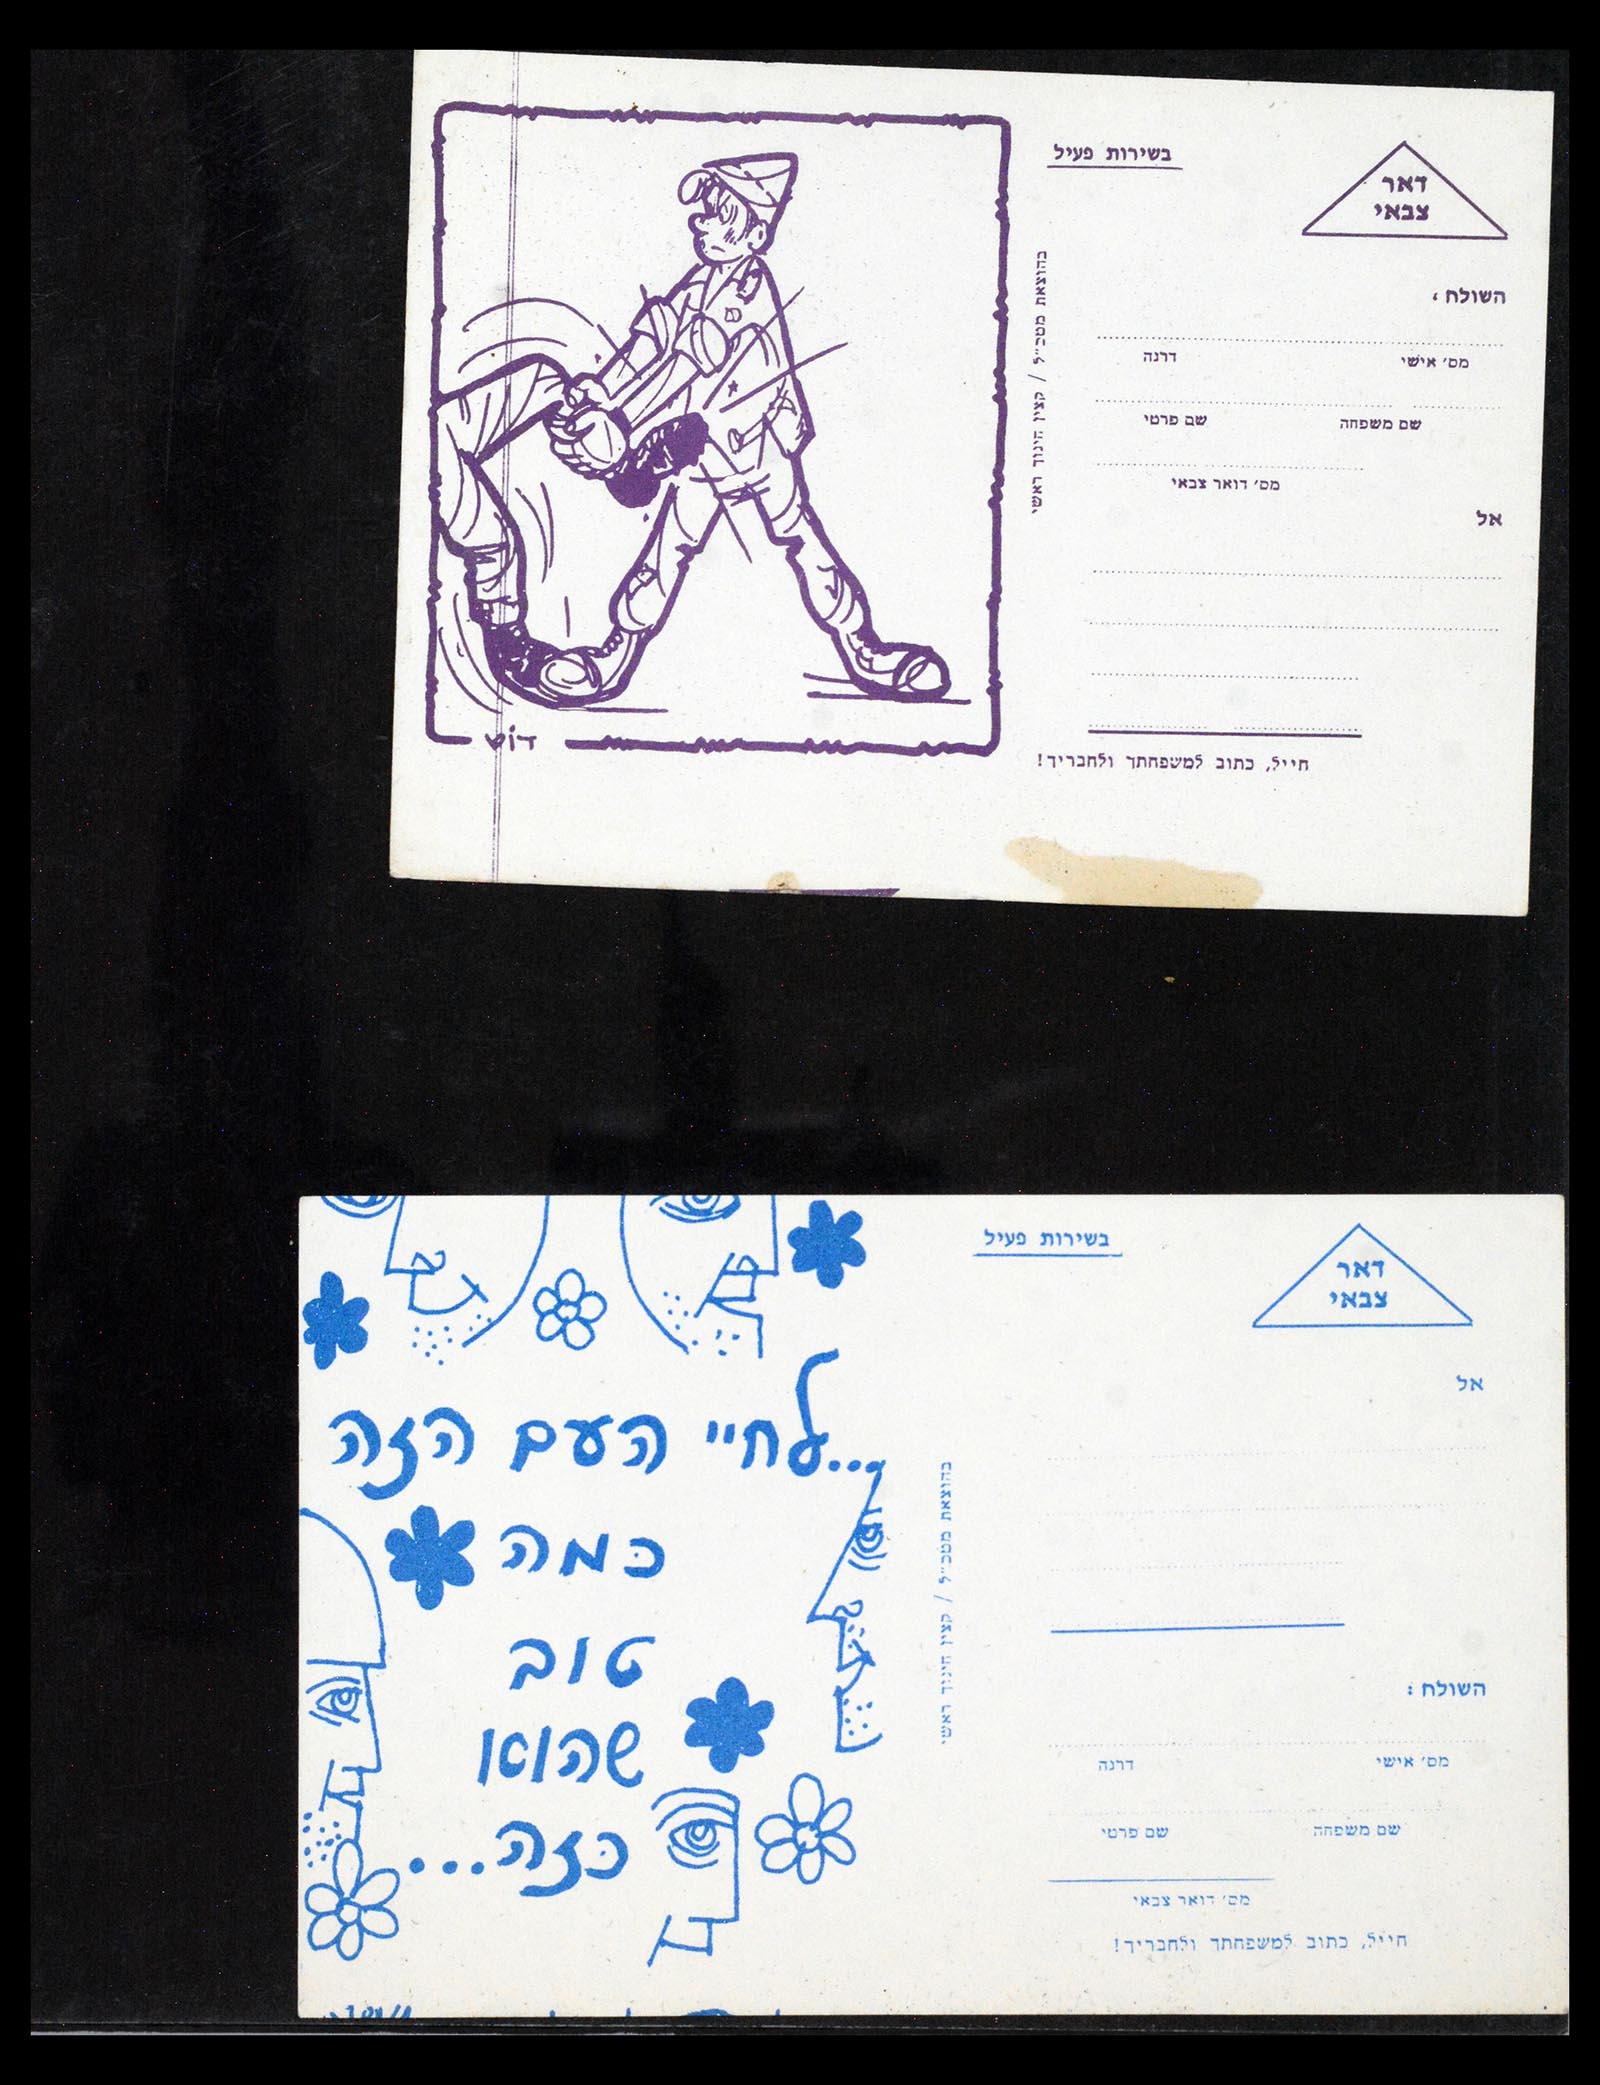 בשירות פעיל
דאר
צבאי
השולח:
מס׳ אישי דרגה
שם משפחה שם פרטי
מס׳ דואר צבאי
אל
חייל, כתוב למשפחתך ולחבריך!
בהוצאת מטכ״ל / קצין חינוך ראשי
דוש
בשירות פעיל
דאר
צבאי
אל
השולח:
מס׳ אישי דרגה
שם משפחה שם פרטי
מס׳ דואר צבאי
חייל, כתוב למשפחתך ולחבריך!
בהוצאת מטכ״ל / קצין חינוך ראשי
...לחיי העם הזה
כמה
טוב
שהוא
כזה...